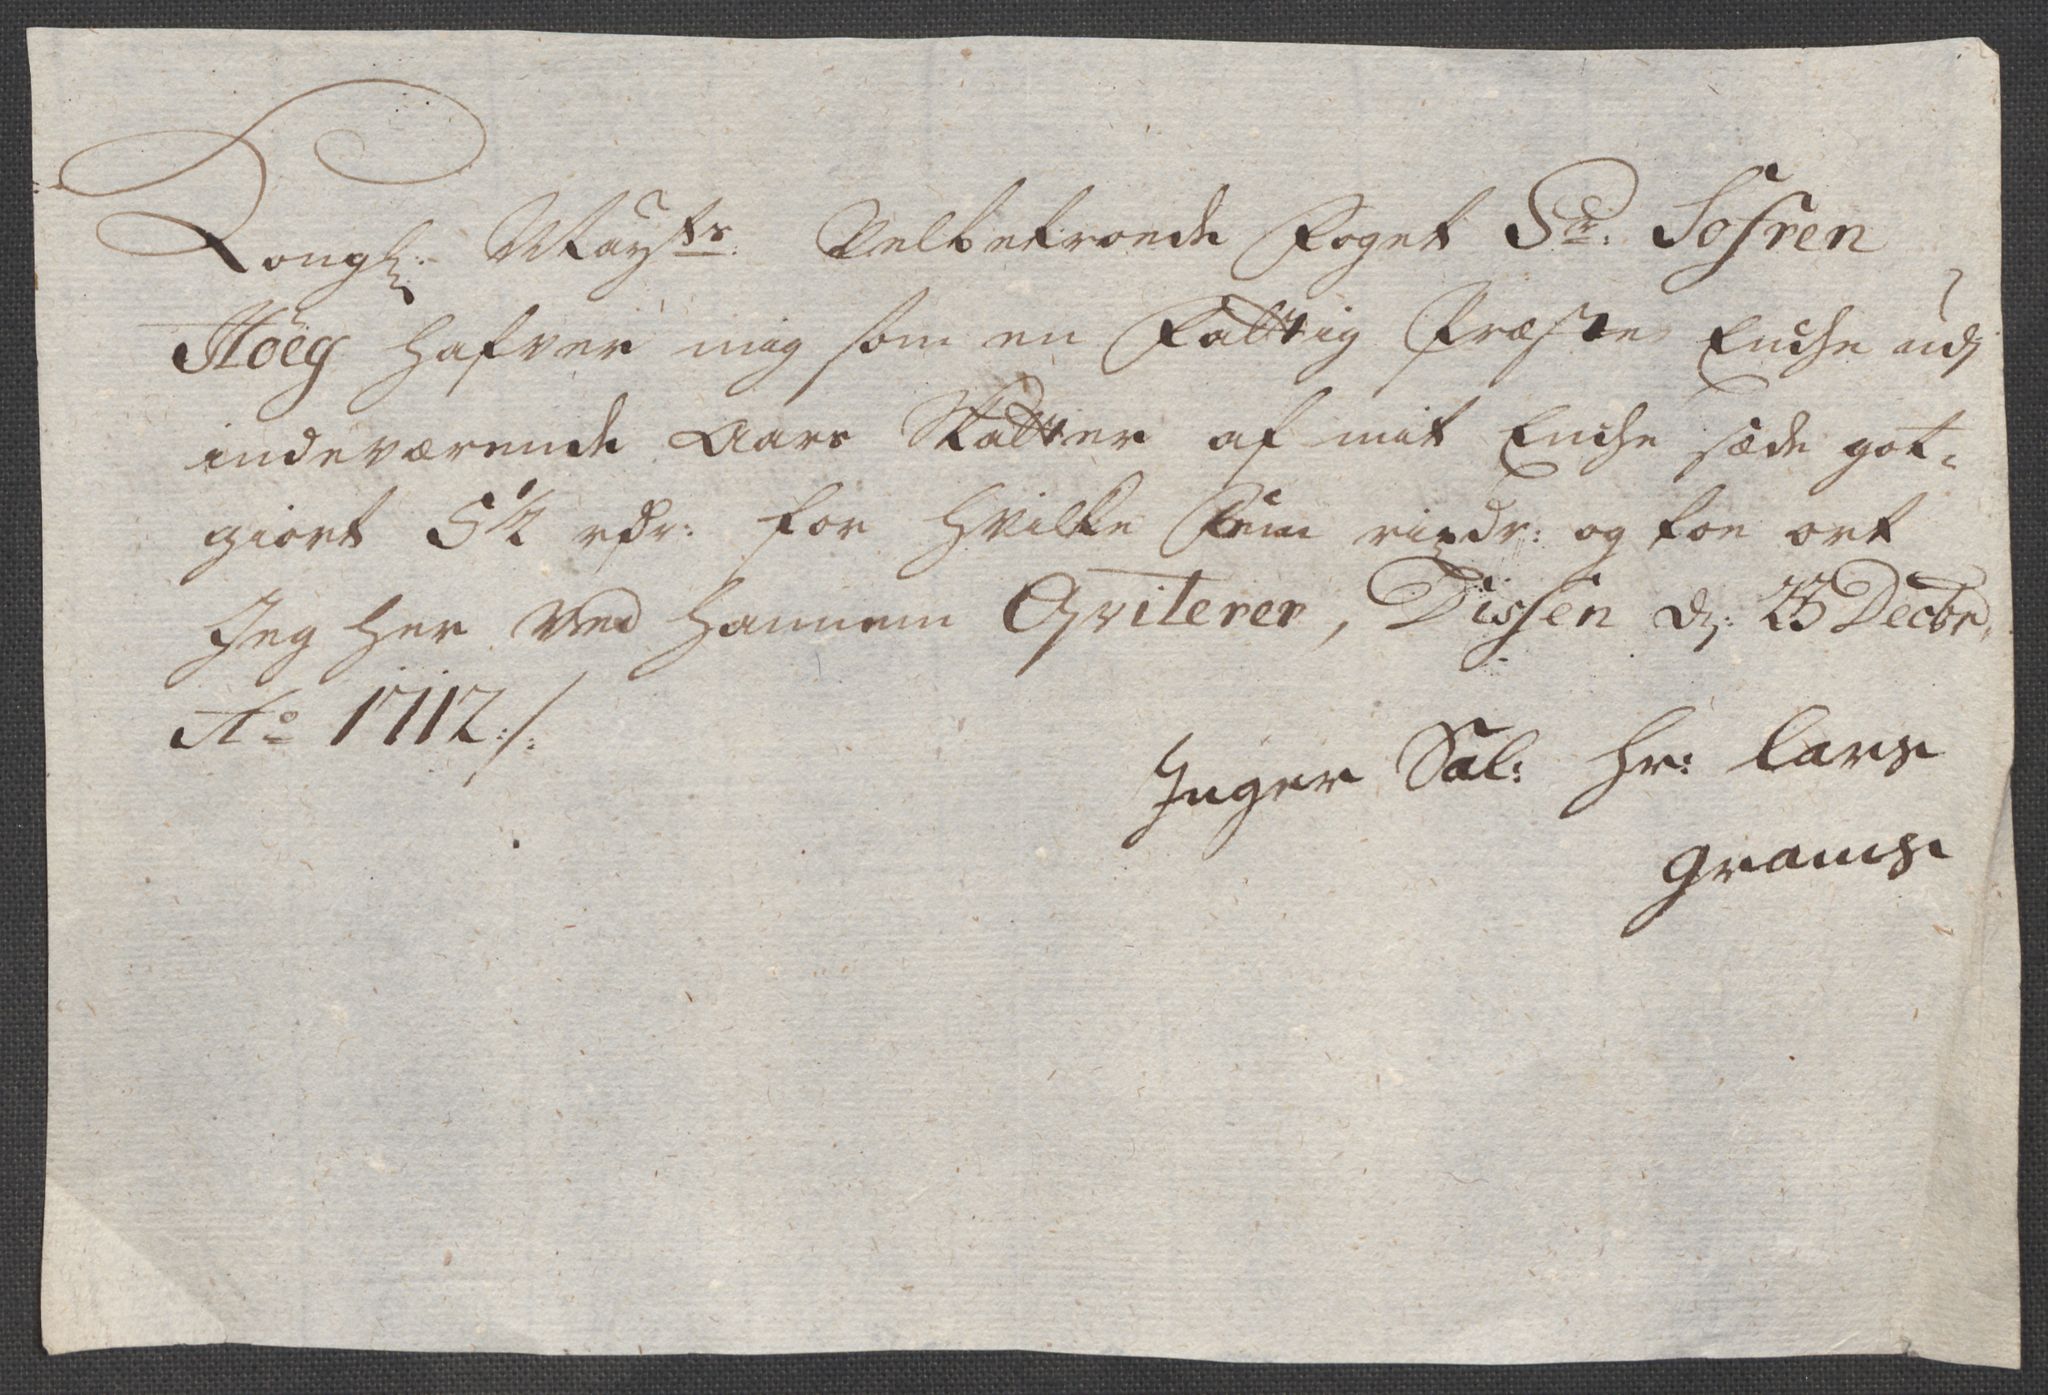 Kongl: Mayts. Velbetroede Foget Sr. Sofren
Høeg hafver mig som en Fattig Præste Enche udj
indeværende Aars Skatter af mit Enche sæde got-
giort 5½ rdr: for hvilke Fem rixdr: og toe ort
Jeg her Ved hannem Qviterer, Dissen d: 23 Decbr.
Ao 1712./.
Inger Sal: Hr: Larse
Gramse